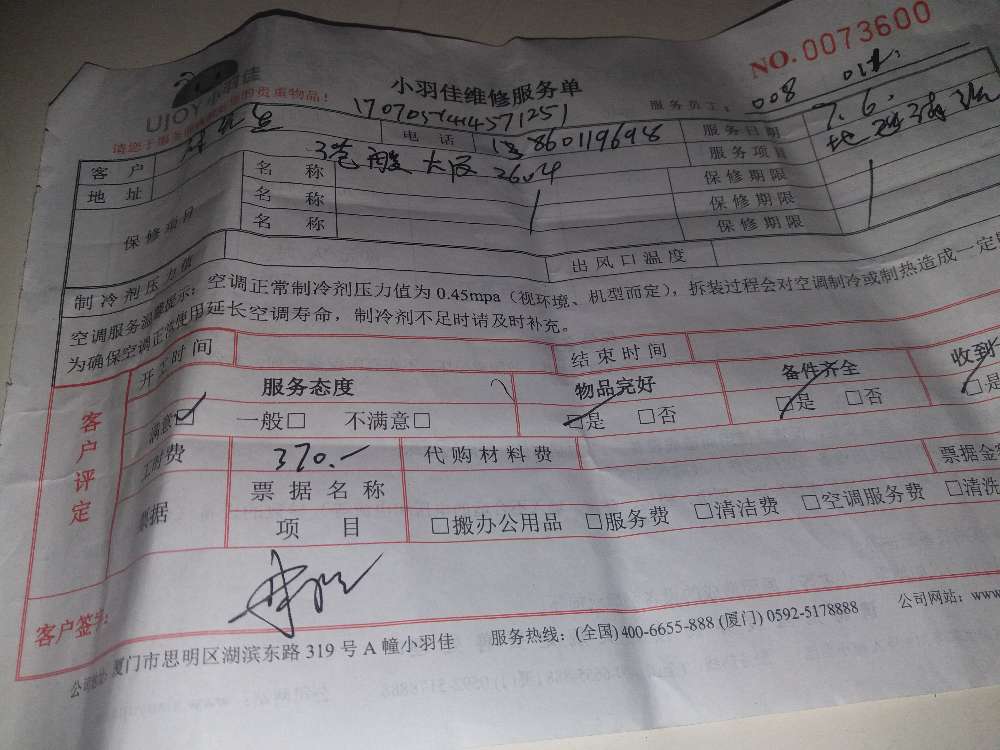 NO.0073600
UJOY小羽佳
小羽佳维修服务单
17070514414571251
服务员工: 008
客户 电话 13860119698 服务日期 7.6.
地址 2604 服务项目
保修项目 名称 保修期限
名称 保修期限
名称 保修期限
制冷剂压力值 出风口温度
空调服务温馨提示：空调正常制冷剂压力值为0.45mpa（视环境、机型而定），拆装过程会对空调制冷或制热造成一定
为确保空调正常使用延长空调寿命，制冷剂不足时请及时补充。
开工时间 结束时间
客户评定 服务态度 物品完好 备件齐全 收到
满意□ 一般□ 不满意□ □是 □否 □是 □否 □是
工时费 370.- 代购材料费 票据金
票据 票据名称
项目 □搬办公用品 □服务费 □清洁费 □空调服务费 □清洗
客户签字:
公司地址: 厦门市思明区湖滨东路319号A幢小羽佳 服务热线：(全国) 400-6655-888 (厦门) 0592-5178888 公司网站：www.